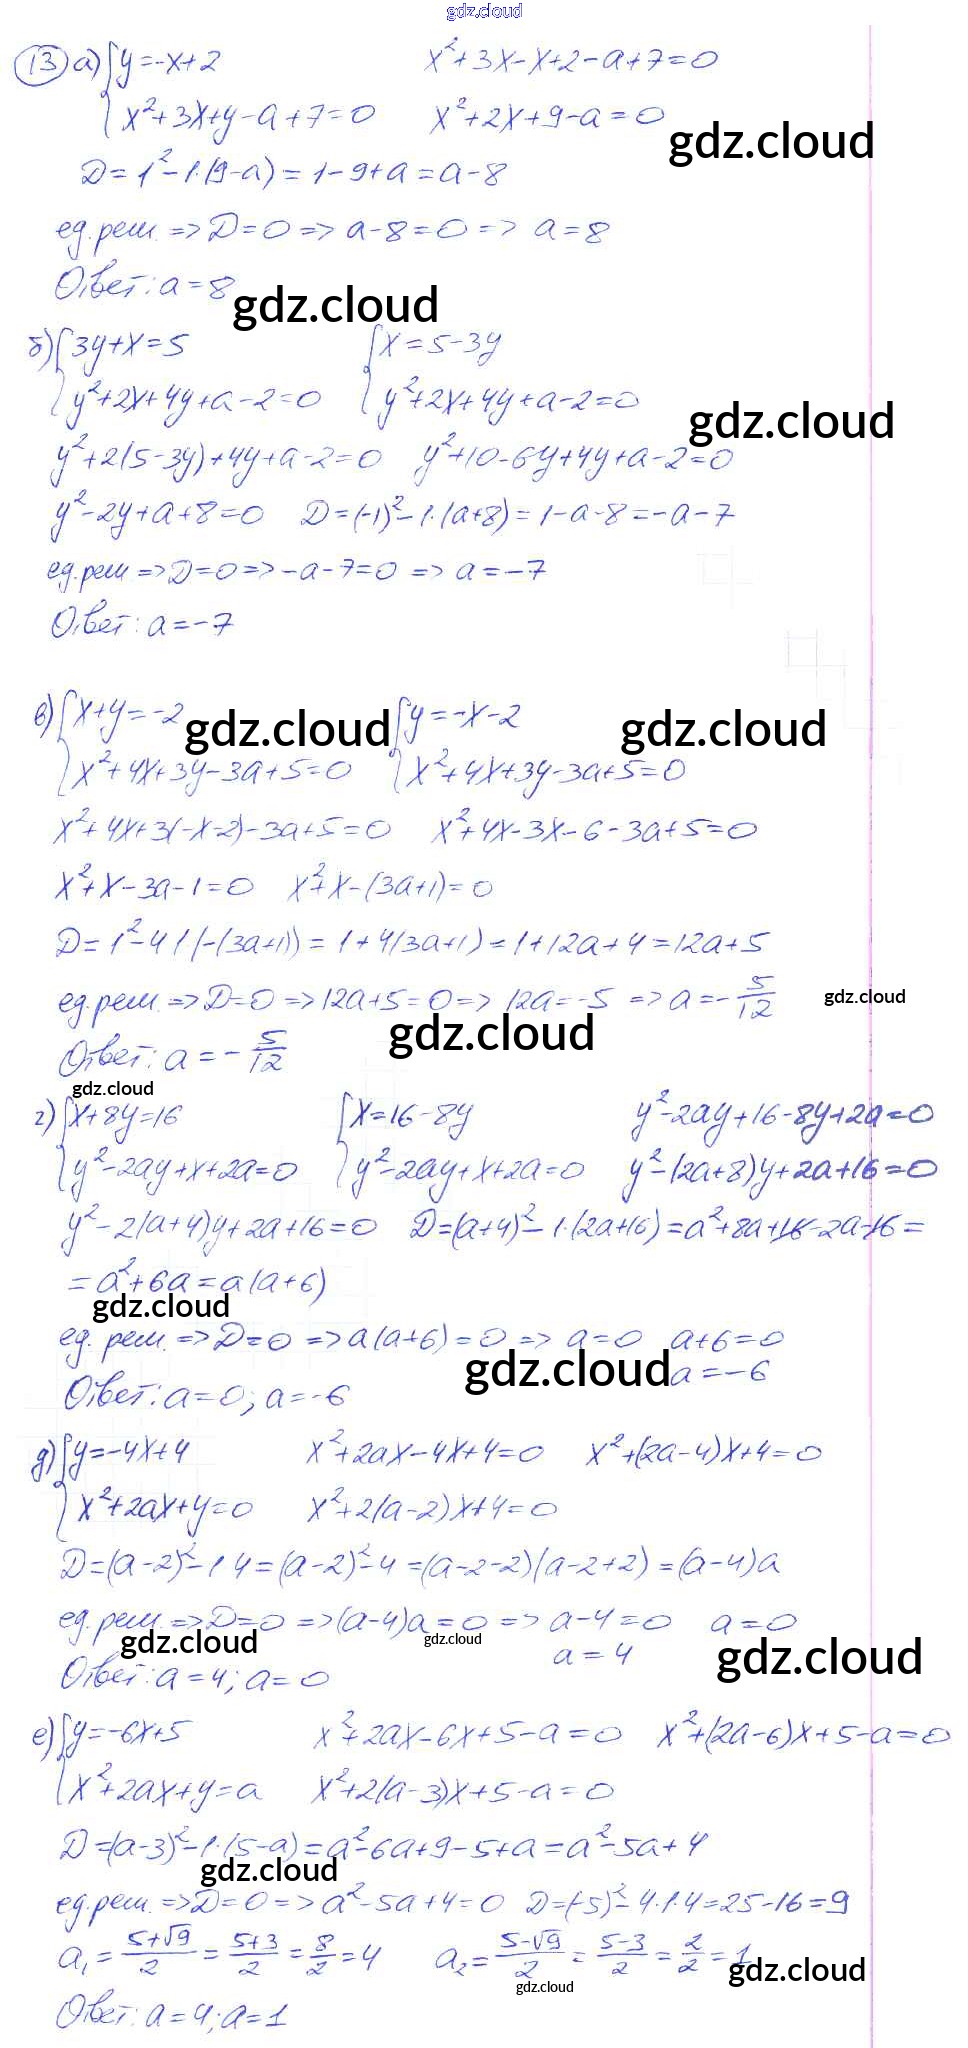 gdz.cloud
13 а) { y=-x+2     x²+3x-x+2-a+7=0
x²+3x+y-a+7=0     x²+2x+9-a=0
gdz.cloud
D=1²-1·(9-a)=1-9+a=a-8
ед.реш. => D=0 => a-8=0 => a=8
Ответ: a=8
gdz.cloud
б) { 3y+x=5     { x=5-3y
y²+2x+4y+a-2=0     y²+2x+4y+a-2=0
gdz.cloud
y²+2(5-3y)+4y+a-2=0     y²+10-6y+4y+a-2=0
y²-2y+a+8=0     D=(-1)²-1·(a+8)=1-a-8=-a-7
ед.реш => D=0 => -a-7=0 => a=-7
Ответ: a=-7
в) { x+y=-2     { y=-x-2
gdz.cloud     gdz.cloud
x²+4x+3y-3a+5=0     x²+4x+3y-3a+5=0
x²+4x+3(-x-2)-3a+5=0     x²+4x-3x-6-3a+5=0
x²+x-3a-1=0     x²+x-(3a+1)=0
D=1²-4·1·(-(3a+1))=1+4(3a+1)=1+12a+4=12a+5
ед.реш. => D=0 => 12a+5=0 => 12a=-5 => a=-5/12
gdz.cloud
gdz.cloud
Ответ: a=-5/12
gdz.cloud
г) { x+8y=16     { x=16-8y     y²-2ay+16-8y+2a=0
y²-2ay+x+2a=0     y²-2ay+x+2a=0     y²-(2a+8)y+2a+16=0
y²-2(a+4)y+2a+16=0     D=(a+4)²-1·(2a+16)=a²+8a+16-2a-16=
=a²+6a=a(a+6)
gdz.cloud
ед. реш. => D=0 => a(a+6)=0 => a=0     a+6=0
gdz.cloud     a=-6
Ответ: a=0; a=-6
д) { y=-4x+4     x²+2ax-4x+4=0     x²+(2a-4)x+4=0
x²+2ax+y=0     x²+2(a-2)x+4=0
D=(a-2)²-1·4=(a-2)²-4=(a-2-2)(a-2+2)=(a-4)a
ед.реш. => D=0 => (a-4)a=0 => a-4=0     a=0
gdz.cloud     gdz.cloud     a=4     gdz.cloud
Ответ: a=4; a=0
е) { y=-6x+5     x²+2ax-6x+5-a=0     x²+(2a-6)x+5-a=0
x²+2ax+y=a     x²+2(a-3)x+5-a=0
D=(a-3)²-1·(5-a)=a²-6a+9-5+a=a²-5a+4
gdz.cloud
ед.реш. => D=0 => a²-5a+4=0     D=(-5)²-4·1·4=25-16=9
a₁=(5+√9)/2=(5+3)/2=8/2=4     a₂=(5-√9)/2=(5-3)/2=2/2=1
gdz.cloud     gdz.cloud
Ответ: a=4; a=1